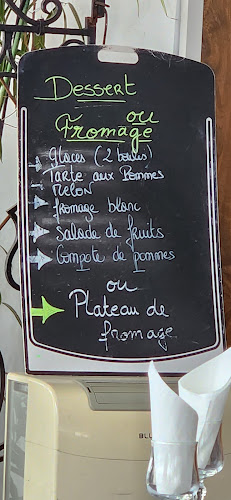 Dessert
ou
Fromage
Glaces (2 boules)
Tarte aux Pommes
Melon
fromage blanc
Salade de fruits
Compote de pommes
ou
Plateau de
fromage